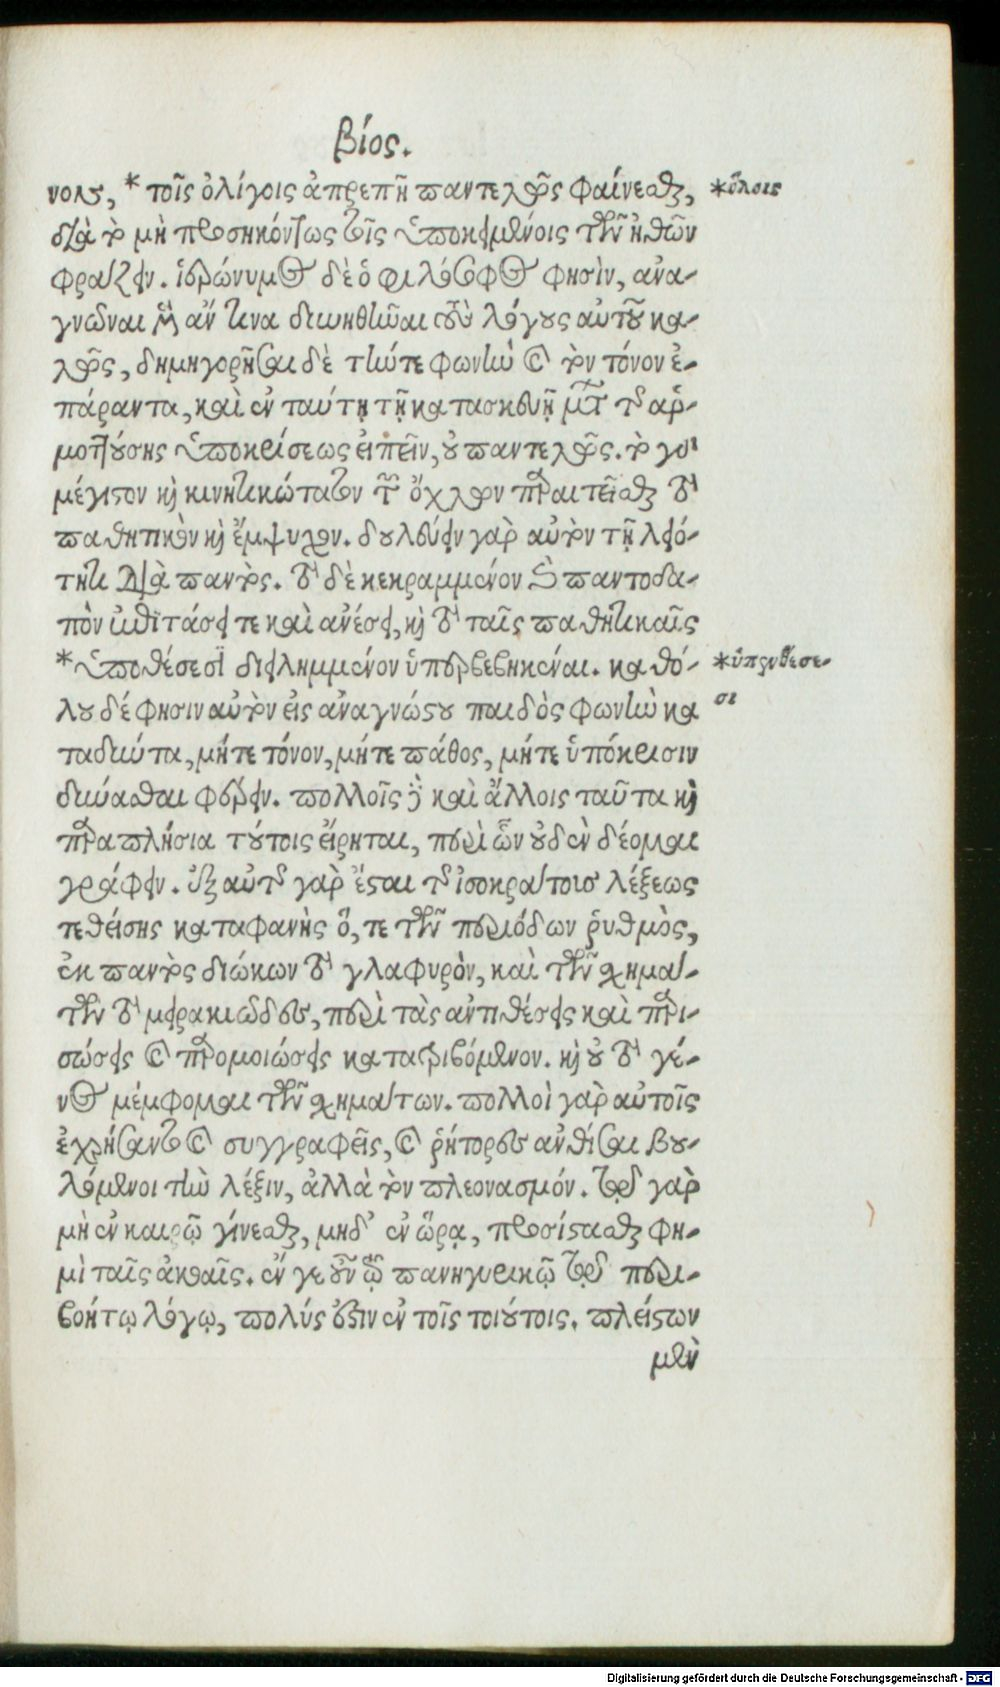 βίος.
νοις, * τοῖς ὀλίγοις ἀπρεπῆ παντελῶς φαίνεσθαι, *ὅλοις
διὰ τὸ μὴ προσηκόντως τοῖς ὑποκειμένοις τῶν ἠθῶν
φράζειν. ἱερώνυμος δὲ ὁ φιλόσοφος φησὶν, ἀνα-
γνῶναι μὲν ἄν τινα δυνηθῆναι τοὺς λόγους αὐτοῦ κα-
λῶς, δημηγορῆσαι δὲ τήν τε φωνὴν καὶ τὸν τόνον ἐ-
πάραντα, καὶ ἐν ταύτῃ τῇ κατασκευῇ μετὰ τῆς ἁρ-
μοττούσης ὑποκρίσεως εἰπεῖν, οὐ παντελῶς. τὸ γὰρ
μέγιστον καὶ κινητικώτατον τῶν ὄχλων παραιτεῖσθαι τὸ
παθητικὸν καὶ ἔμψυχον. δουλεύειν γὰρ αὐτὸν τῇ λειό-
τητι διὰ παντὸς. τὸ δὲ κεκραμμένον καὶ παντοδα-
πὸν ἐπιτάσει τε καὶ ἀνέσει, καὶ τὸ ταῖς παθητικαῖς
*ὑποθέσεσι διειλημμένον ὑπερβεβηκέναι. καθό- *ὑπερθέσε-
σι
λου δέ φησιν αὐτὸν εἰς ἀναγνώστου παιδὸς φωνὴν κα
ταδύντα, μήτε τόνον, μήτε πάθος, μήτε ὑπόκρισιν
δύνασθαι φέρειν. πολλοῖς δὲ καὶ ἄλλοις ταῦτα καὶ
παραπλήσια τούτοις εἴρηται, περὶ ὧν οὐδὲν δέομαι
γράφειν. ἐξ αὐτῆς γὰρ ἔσται τῆς ἰσοκράτους λέξεως
τεθείσης καταφανὴς ὅ, τε τῶν περιόδων ῥυθμὸς,
ἐκ παντὸς διώκων τὸ γλαφυρὸν, καὶ τῶν σχημά-
των τὸ μειρακιῶδες, περὶ τὰς ἀντιθέσεις καὶ παρι-
σώσεις καὶ παρομοιώσεις κατατριβόμενον. καὶ οὐ τὸ γέ-
νος μέμφομαι τῶν σχημάτων. πολλοὶ γὰρ αὐτοῖς
ἐχρήσαντο καὶ συγγραφεῖς, καὶ ῥήτορες ἀνθίσαι βου-
λόμενοι τὴν λέξιν, ἀλλὰ τὸν πλεονασμόν. τῷ γὰρ
μὴ ἐν καιρῷ γίνεσθαι, μηδ' ἐν ὥρᾳ, προσίστασθαι φη-
μὶ ταῖς ἀκοαῖς. ἐν γε οὖν τῷ πανηγυρικῷ τῷ περι-
βοήτῳ λόγῳ, πολύς ἐστιν ἐν τοῖς τοιούτοις. πλείστων
μὲν
Digitalisierung gefördert durch die Deutsche Forschungsgemeinschaft - DFG